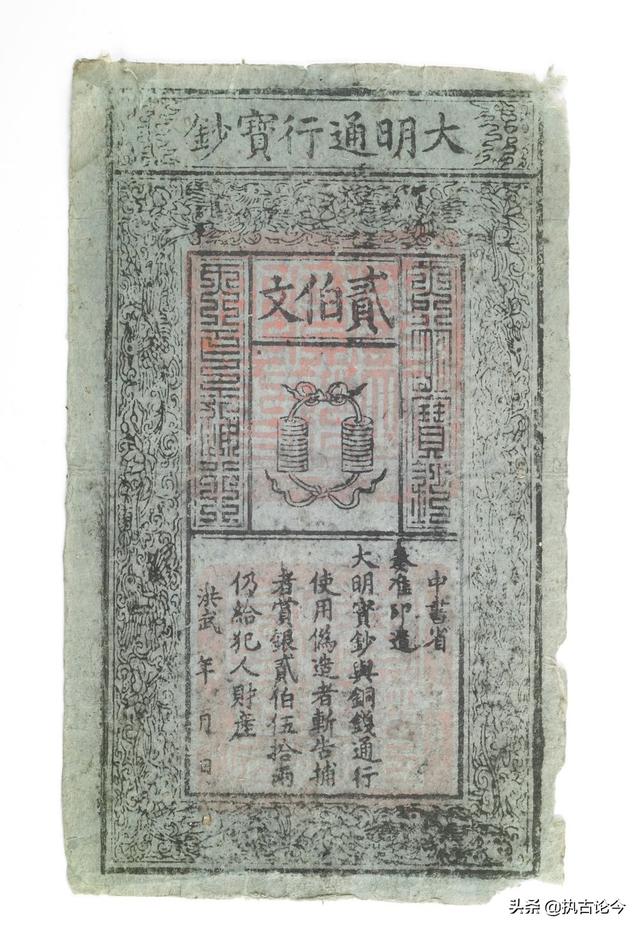 大明通行寶鈔
貳伯文
中書省
奏准印造
大明寶鈔與銅錢通行
使用僞造者斬告捕
者賞銀貳伯伍拾兩
仍給犯人財產
洪武 年 月 日
头条 @执古论今